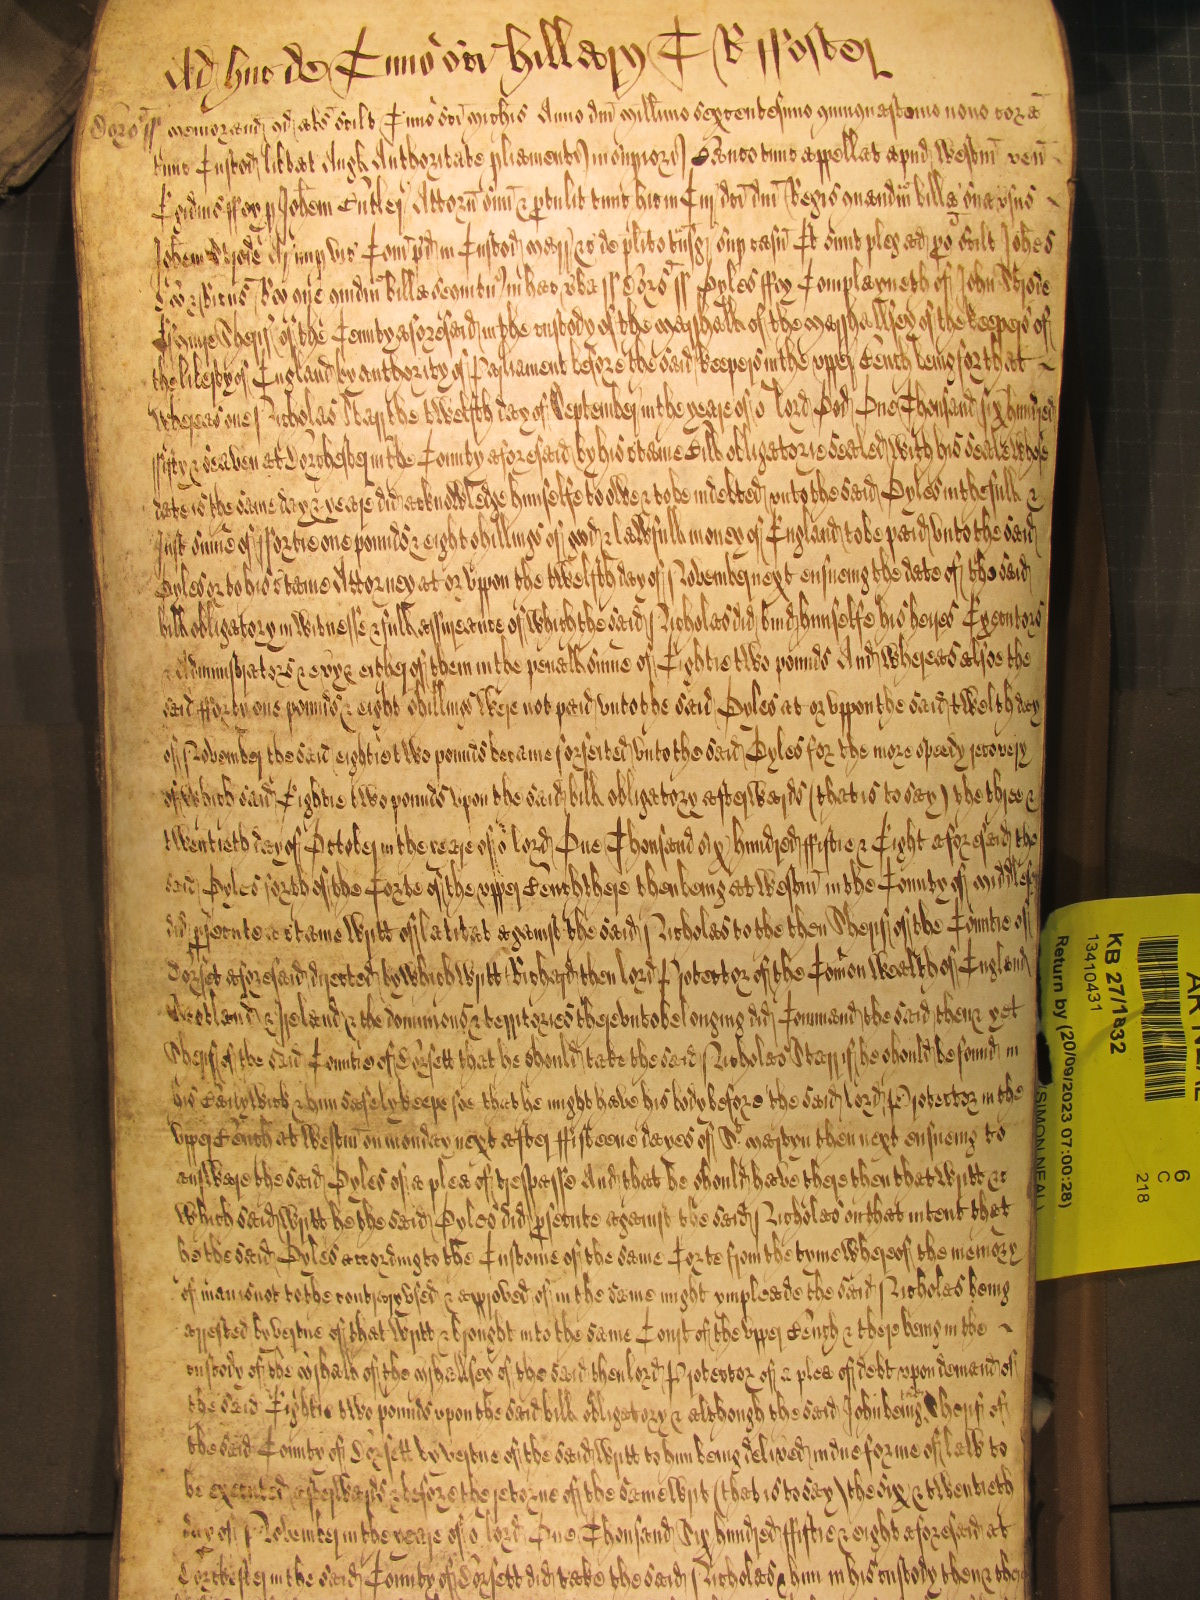 Ad huc de Tmio sci Hillary T R ffoster
Dors ss memorand qd als scilt Tmio sci Michis Anno dni millimo sexcentesimo quinquagesimo nono cora
tunc Custod libtat Angl Authoritate pliamenti in suppiori Banco tunc appellat apud Westm ven
Egidius ffoy p Johem Cutler Attorn suu & ptulit tunc hic in Cur dci dni Regis quandm billa sua vsus
Johem Strode Ar nup vic Com pd in Custod marr &c de plito tnsgr sup casu Et sunt pleg de pro scilt Johes
Doo & Ricus Roo que quidm billa sequitr in hec vba ss Dors ss Gyles ffoy Complayneth of John Strode
Esquire Sheriff of the County aforesaid in the custody of the marshall of the marshallsey of the keepers of
the liberty of England by authority of Parliament before the said keepers in the vpper Bench being for that
whereas one Nicholas Starr the twelfth day of September in the yeare of or lord God One Thousand six hundred
ffifty & seaven at Dorchester in the County aforesaid by his ctaine Bill obligatorie sealed with his seale whose
date is the same day & yeare did acknowledge himselfe to owe & to be indebted vnto the said Gyles in the full &
Just sume of ffortie one pounds & eight shillings of good & lawfull money of England to be paid vnto the said
Gyles or to his ctaine Attorney at or vppon the twelfth day of November next ensueing the date of the said
bill obligatory in witnesse & full assureance of which the said Nicholas did bind himselfe his heires Executors
& Administrators & evry & either of them in the penall sume of Eightie two pounds And whereas alsoe the
said fforty one pounds & eight shillings were not paid vnto the said Gyles at or vppon the said twelth day
of November the said eightie two pounds became forfeited vnto the said Gyles for the more speedy recovery
of which said Eightie two pounds vpon the said bill obligatory afterwards (that is to say) the three &
twentieth day of October in the yeare of or lord One Thousand six hundred ffiftie & Eight aforesaid the
said Gyles forth of the Corte of the vpper Bench there then being at Westm in the County of midlesex
did psecute a ctaine writt of latitat against the said Nicholas to the then Sheriff of the Countie of
Dorset aforesaid directed by which writt Richard then lord Protector of the Comon Wealth of England
Scotland & Ireland & the dominions & territories therevnto belonging did Command the said then & yet
Sheriff of the said Countie of Dorsett that he should take the said Nicholas Starr if he should be found in
his Bailywick & him safely keepe soe that he might have his body before the said lord Protector in the
vpper Bench at Westm on monday next after ffifteene dayes of St martyn then next ensueing to
answare the said Gyles of a plea of trespasse And that he should have there then that writt &c
Which said writt he the said Gyles did psecute against the said Nicholas on that intent that
he the said Gyles according to the Custome of the same Corte from the tyme whereof the memory
of man is not to the contrary vsed & approved of in the same might impleade the said Nicholas being
arrested by vertue of that writt & brought into the same Court of the vpper Bench & there being in the
custody of the mshall of the mshallsey of the said then lord Protector of a plea of debt vpon demand of
the said Eightie two pounds vpon the said bill obligatory & although the said John being then Sheriff of
the said County of Dorsett by vertue of the said writt to him being delived in due forme of law to
be executed afterwards & before the retorne of the same writ (that is to say) the six & twentieth
day of November in the yeare of or lord One Thousand Six hundred ffiftie & eight aforesaid at
Dorchester in the said County of Dorsett did take the said Nicholas & him in his custody then & there
KB 27/1832
13410431
Return by (20/09/2023 07:00:28)
(SIMON NEAL)
6
C
218